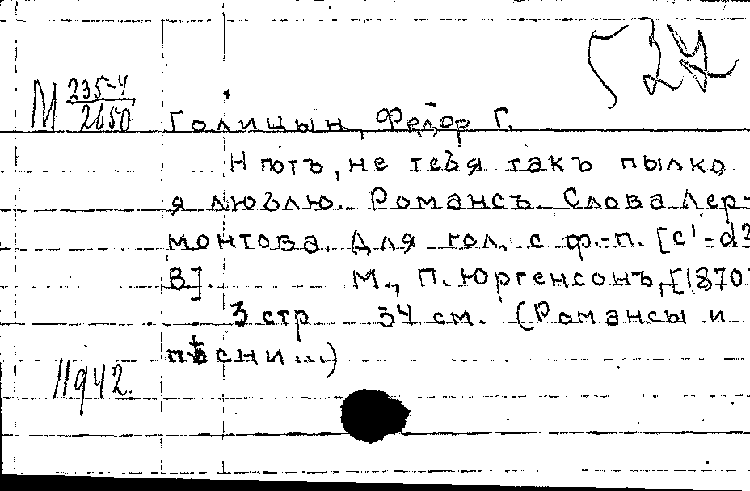 527
М 235-4
2650
Голицын, Федор Г.
Нѣтъ, не тебя такъ пылко
я люблю. Романсъ. Слова Лер-
монтова. Для гол. с ф.-п. [c'-d²
B]. М., П. Юргенсонъ, [1870
3 стр 34 см. (Романсы и
пѣсни...)
11942.